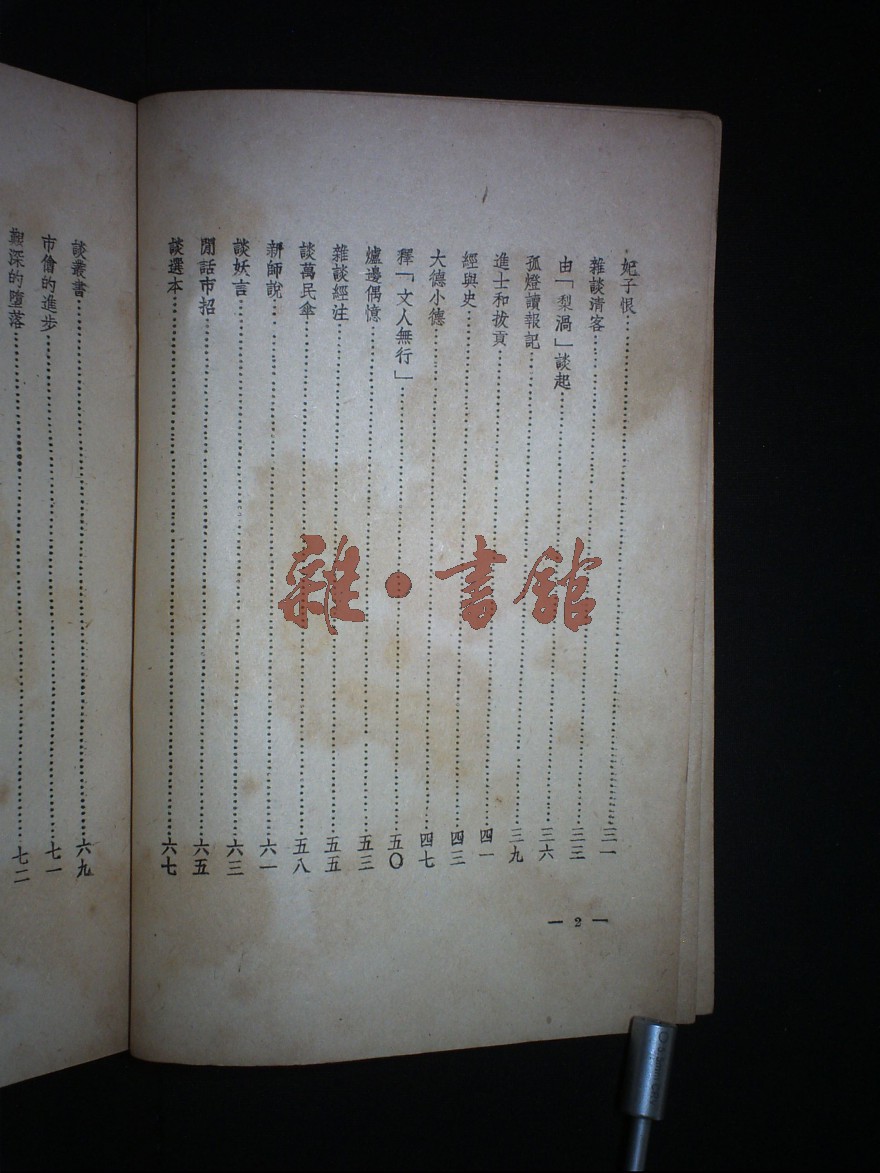 妃子恨 三一
雜談清客 三三
由「梨渦」談起 三六
孤燈讀報記 三九
進士和拔貢 四一
經與史 四三
大德小德 四七
釋「文人無行」 五〇
爐邊偶憶 五三
雜談經注 五五
談萬民傘 五八
新師說 六一
談妖言 六三
閒話市招 六五
談選本 六七
— 2 —
談叢書 六九
市儈的進步 七一
艱深的墮落 七二
雜·書館